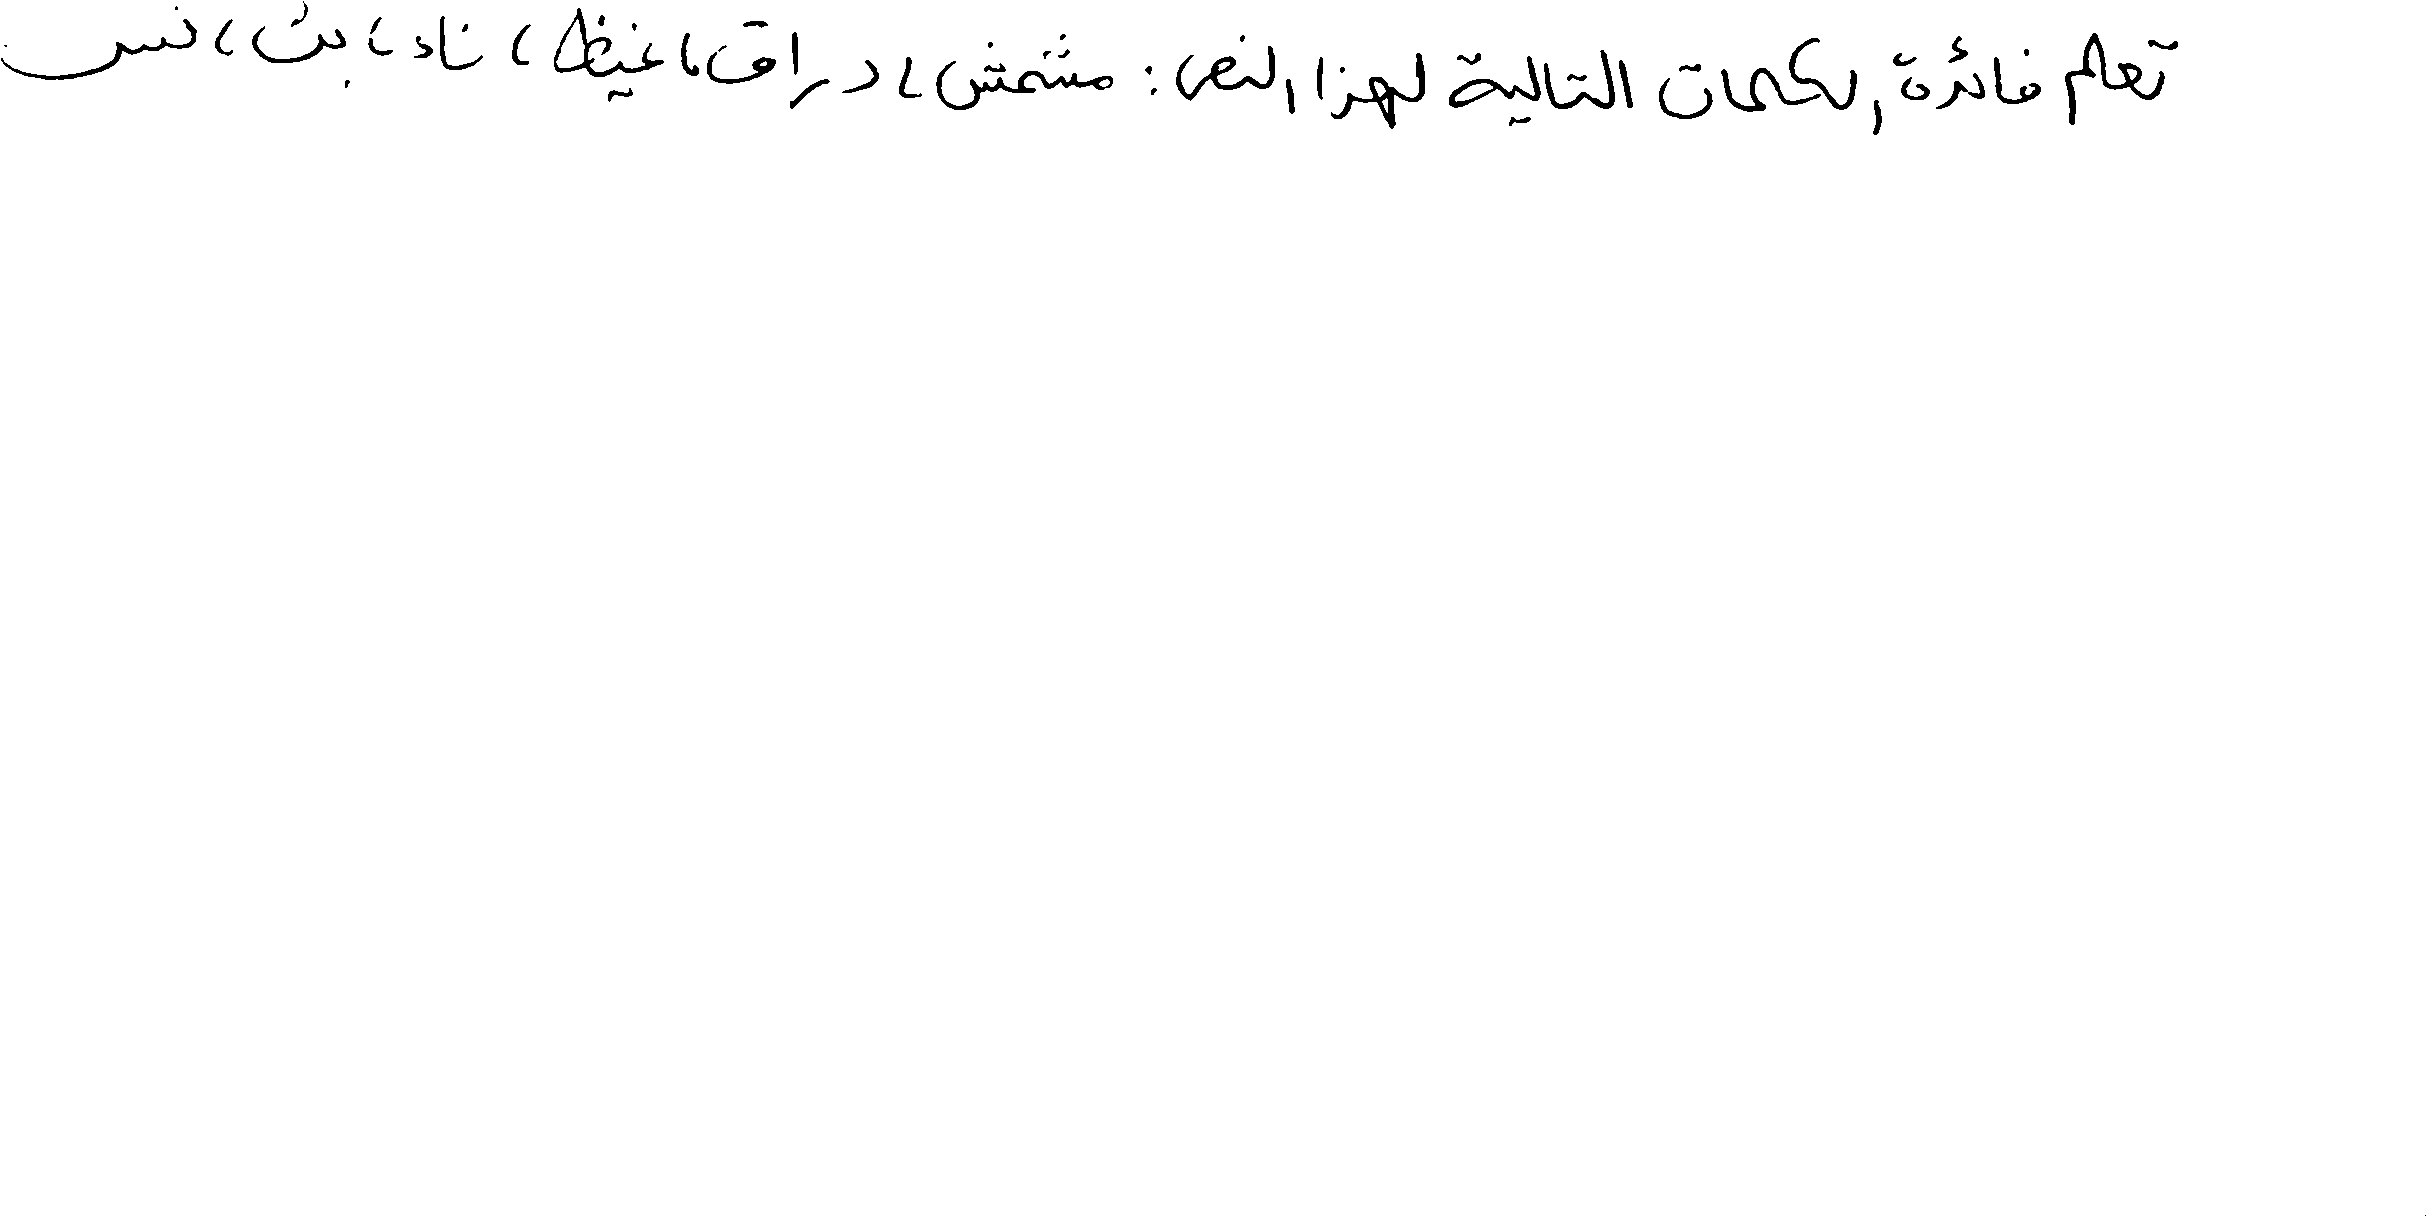 تعلم فائدة الكلمات التالية لهذا النص: مشمش، دراق، غيظ، ناء، بث، نس